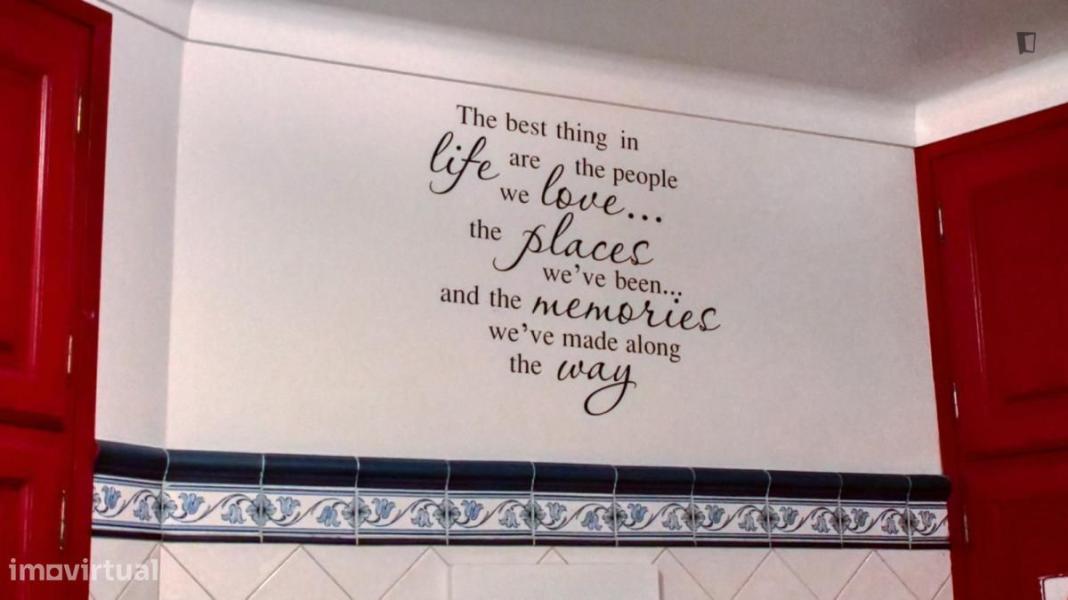 The best thing in
life are the people
we love...
the places
we've been...
and the memories
we've made along
the way
imovirtual